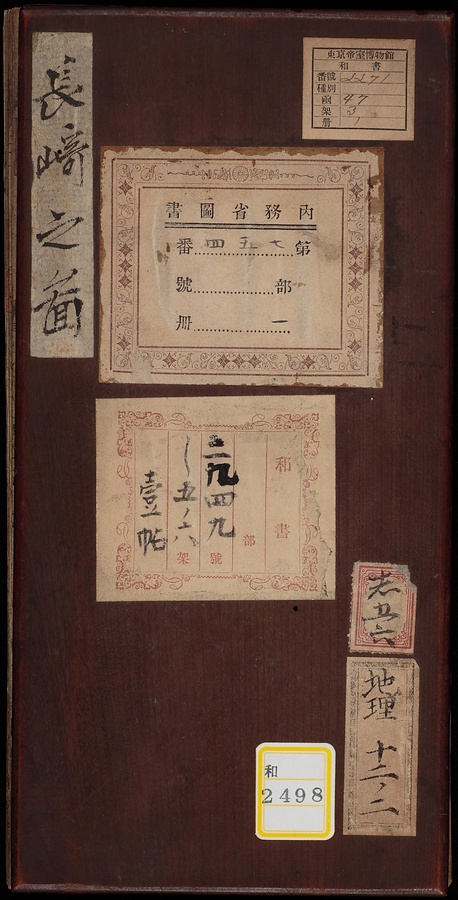 長﨑之圖
東京帝室博物館
和書
番號 2271
種別
函 47
架 3
册 1
內務省圖書
第七五四番
部 號
一 册
和書
部
二九四九 號
一五ノ二八 架
壹帖
地理 十二ノ二
和
2498